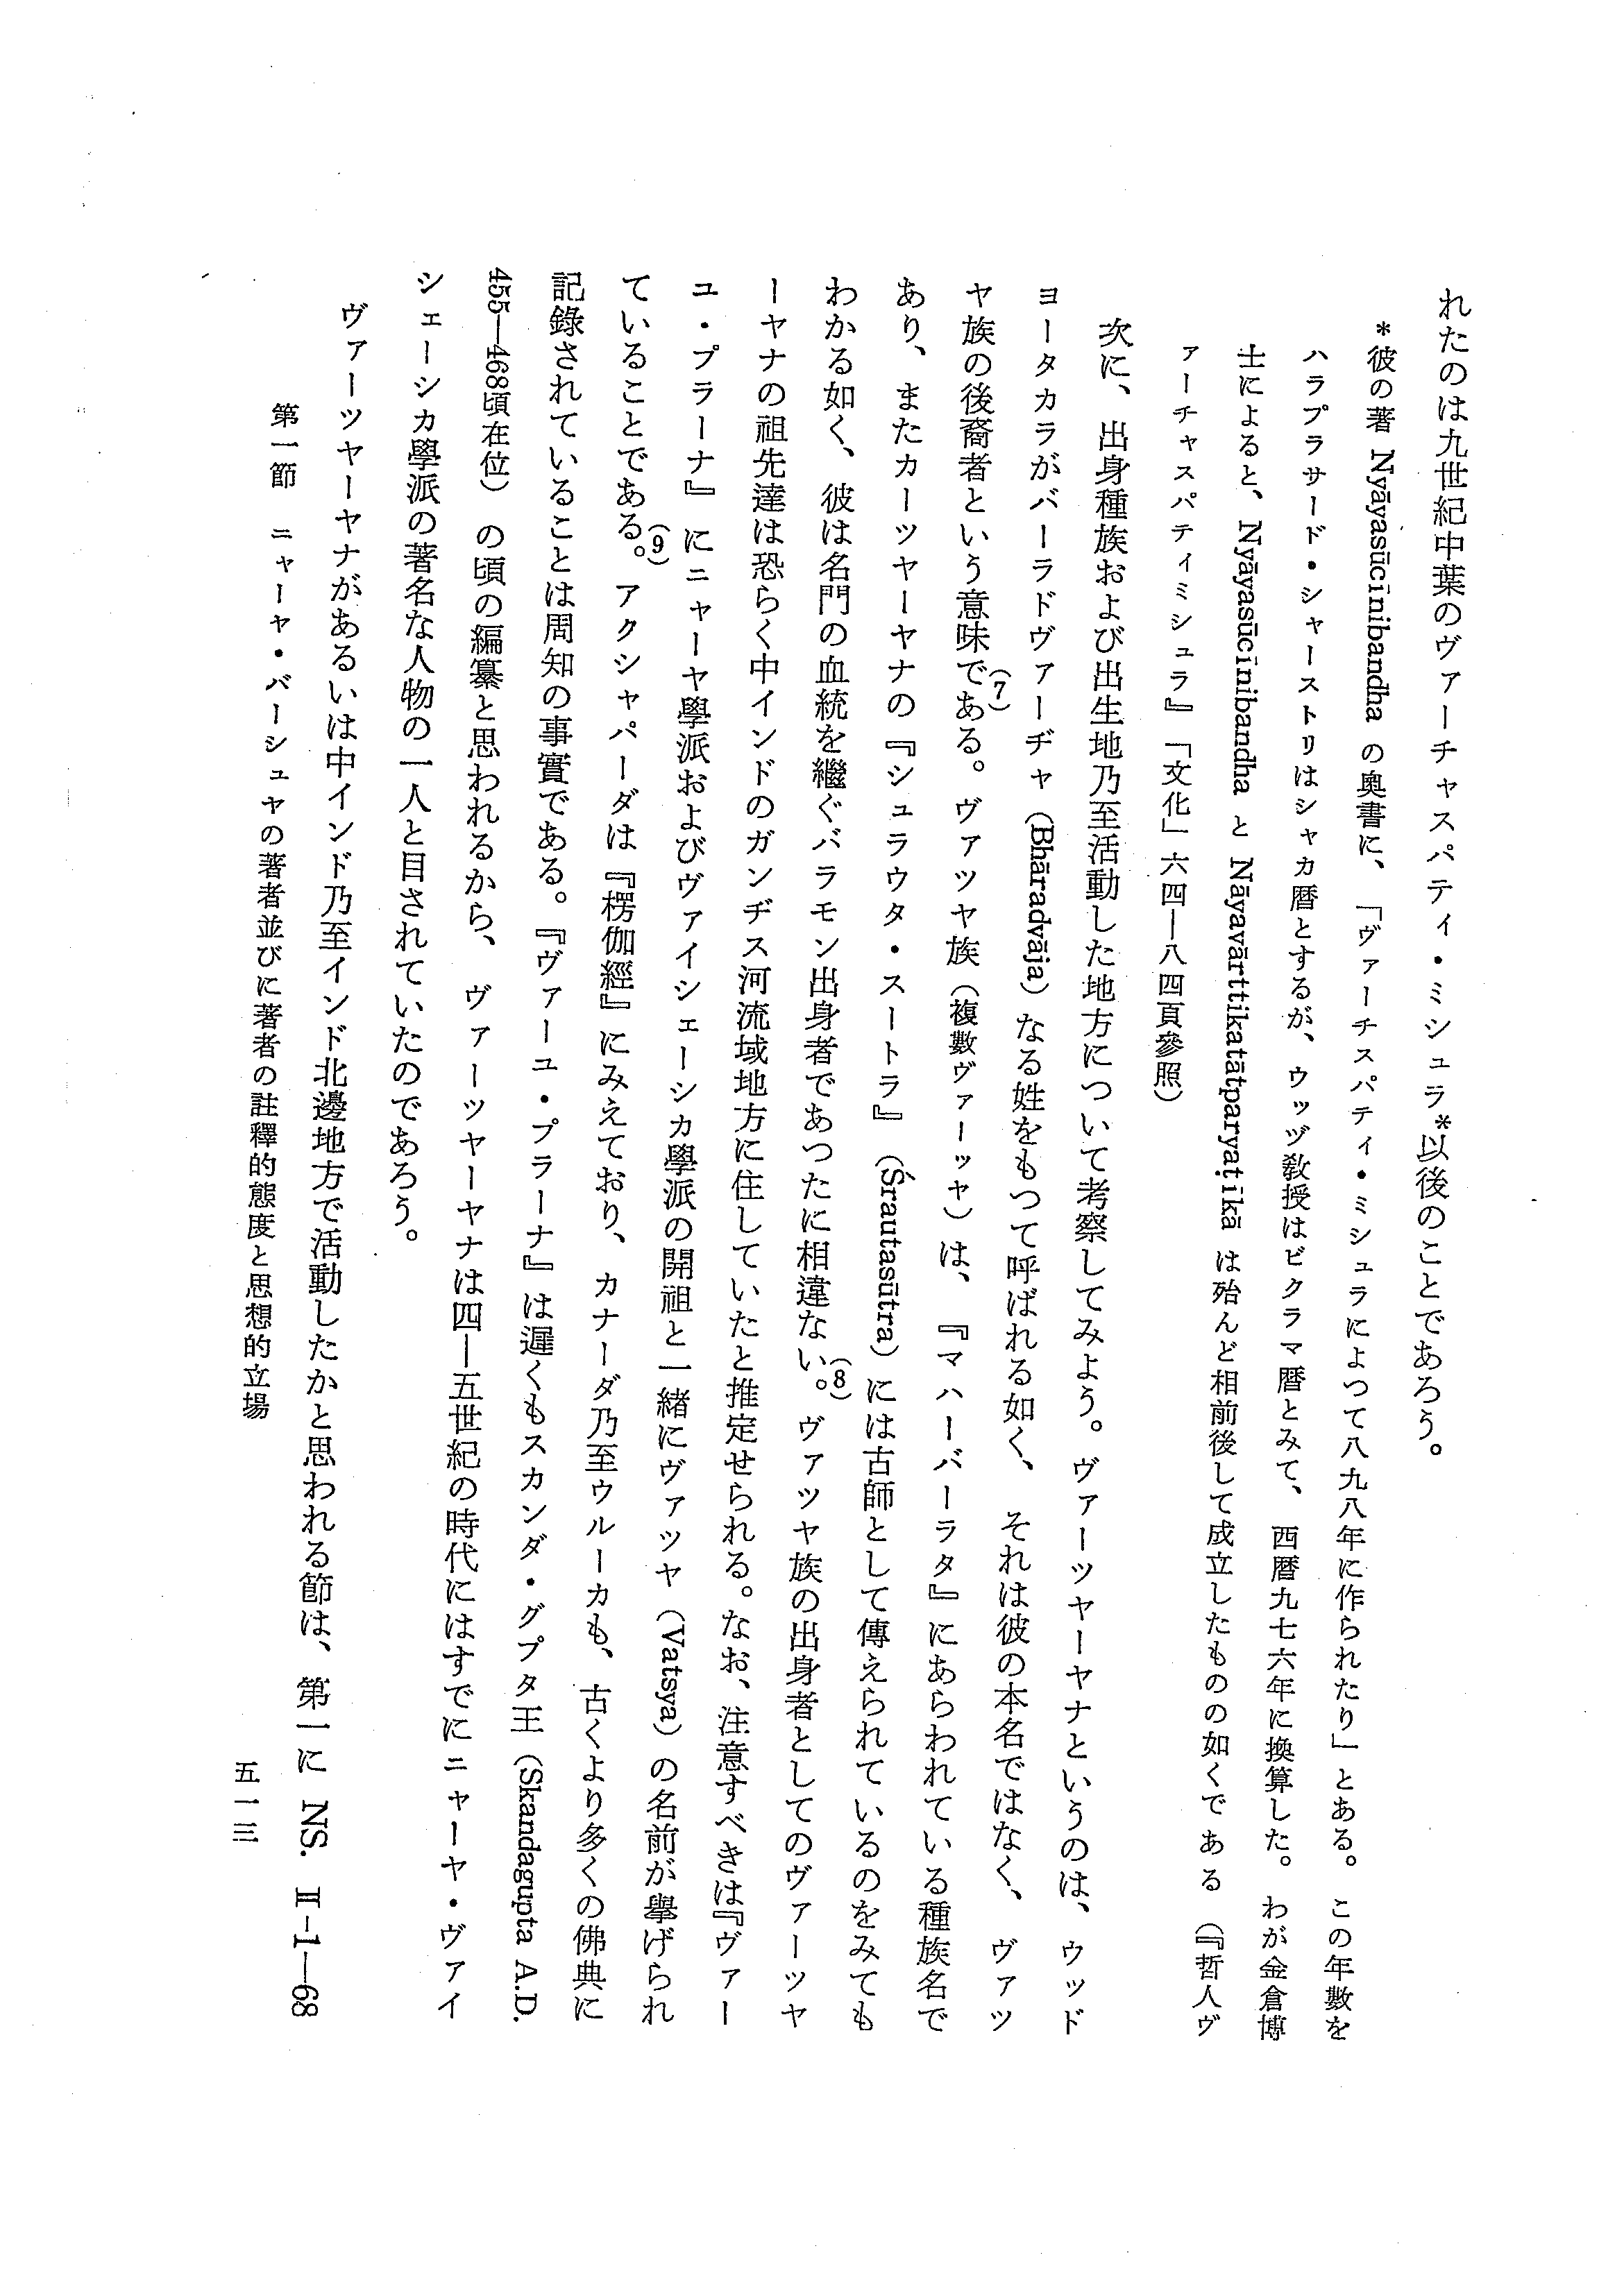 れたのは九世紀中葉のヴァーチャスパティ・ミシュラ*以後のことであろう。
*彼の著 Nyāyasūcīnibandha の奥書に、「ヴァーチスパティ・ミシュラによつて八九八年に作られたり」とある。この年數を
ハラプラサード・シャーストリはシャカ暦とするが、ウッヅ敎授はビクラマ暦とみて、西暦九七六年に換算した。わが金倉博
士によると、Nyāyasūcīnibandha と Nāyavārttikatātparyaṭīkā は殆んど相前後して成立したものの如くである(『哲人ヴ
ァーチャスパティミシュラ』「文化」六四―八四頁參照)
次に、出身種族および出生地乃至活動した地方について考察してみよう。ヴァーツヤーヤナというのは、ウッド
ヨータカラがバーラドヴァーヂャ(Bhāradvāja)なる姓をもつて呼ばれる如く、それは彼の本名ではなく、ヴァツ
ヤ族の後裔者という意味である。(7)ヴァツヤ族(複數ヴァーッヤ)は、『マハーバーラタ』にあらわれている種族名で
あり、またカーツヤーヤナの『シュラウタ・スートラ』(Śrautasūtra)には古師として傳えられているのをみても
わかる如く、彼は名門の血統を繼ぐバラモン出身者であつたに相違ない。(8)ヴァツヤ族の出身者としてのヴァーツヤ
ーヤナの祖先達は恐らく中インドのガンヂス河流域地方に住していたと推定せられる。なお、注意すべきは『ヴァー
ユ・プラーナ』にニャーヤ學派およびヴァイシェーシカ學派の開祖と一緒にヴァツヤ(Vatsya)の名前が擧げられ
ていることである。(9)アクシャパーダは『楞伽經』にみえており、カナーダ乃至ウルーカも、古くより多くの佛典に
記錄されていることは周知の事實である。『ヴァーユ・プラーナ』は遲くもスカンダ・グプタ王(Skandagupta A.D.
455―468頃在位)の頃の編纂と思われるから、ヴァーツヤーヤナは四―五世紀の時代にはすでにニャーヤ・ヴァイ
シェーシカ學派の著名な人物の一人と目されていたのであろう。
ヴァーツヤーヤナがあるいは中インド乃至インド北邊地方で活動したかと思われる節は、第一に NS. II-1―68
第一節 ニャーヤ・バーシュヤの著者並びに著者の註釋的態度と思想的立場
五一三